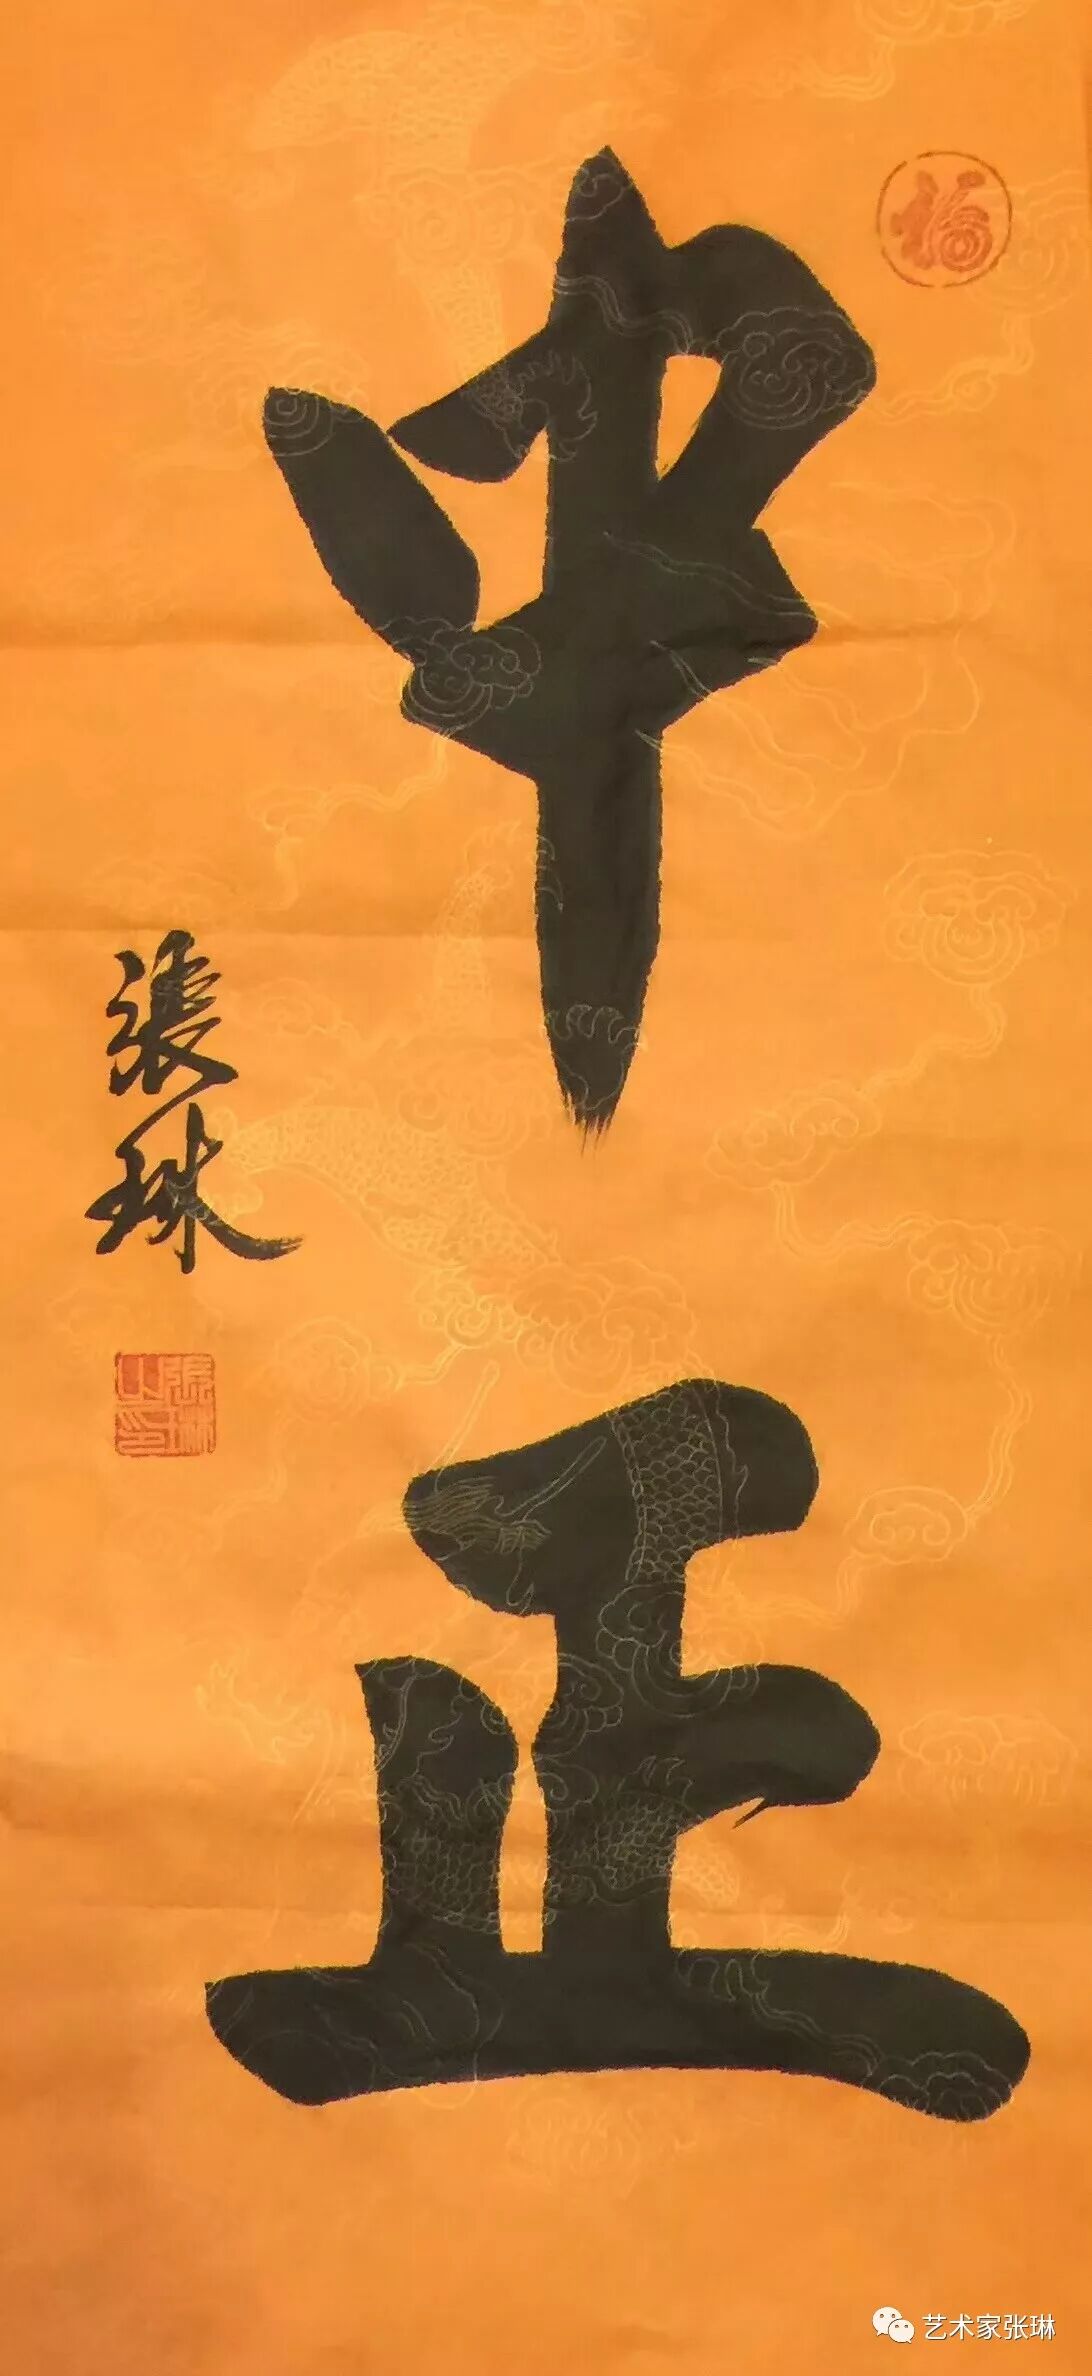 福
中正
張琳
張琳之印
艺术家张琳